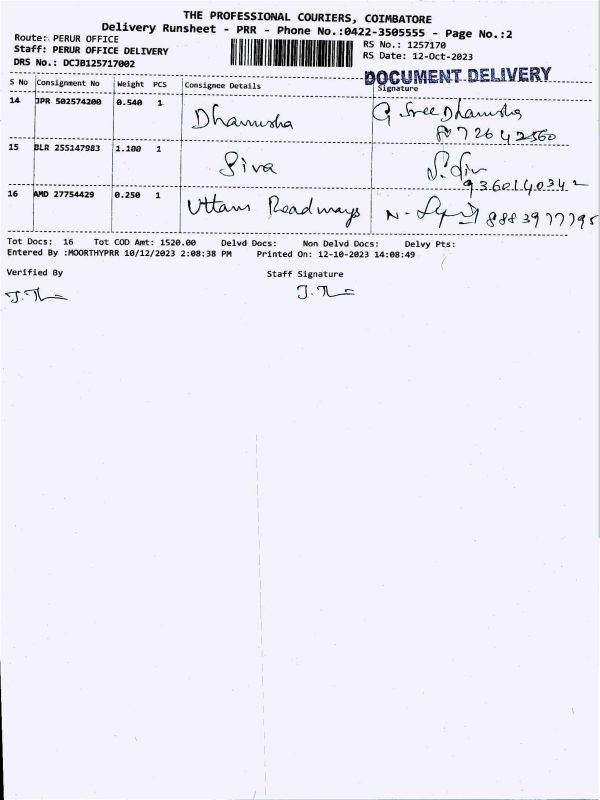 THE PROFESSIONAL COURIERS, COIMBATORE
Delivery Runsheet - PRR - Phone No.:0422-3505555 - Page No.:2
Route: PERUR OFFICE
RS No.: 1257170
Staff: PERUR OFFICE DELIVERY
RS Date: 12-Oct-2023
DRS No.: DCJB125717002
DOCUMENT DELIVERY
S No Consignment No Weight PCS Consignee Details Signature
14 JPR 502574200 0.540 1 Dhanusha G Sree Dhanusha
8072642560
15 BLR 255147983 1.100 1 Siva
9360140342
16 AMD 27754429 0.250 1 Uttam Roadways N. 8883977795
Tot Docs: 16 Tot COD Amt: 1520.00 Delvd Docs: Non Delvd Docs: Delvy Pts:
Entered By :MOORTHYPRR 10/12/2023 2:08:38 PM Printed On: 12-10-2023 14:08:49
Verified By Staff Signature